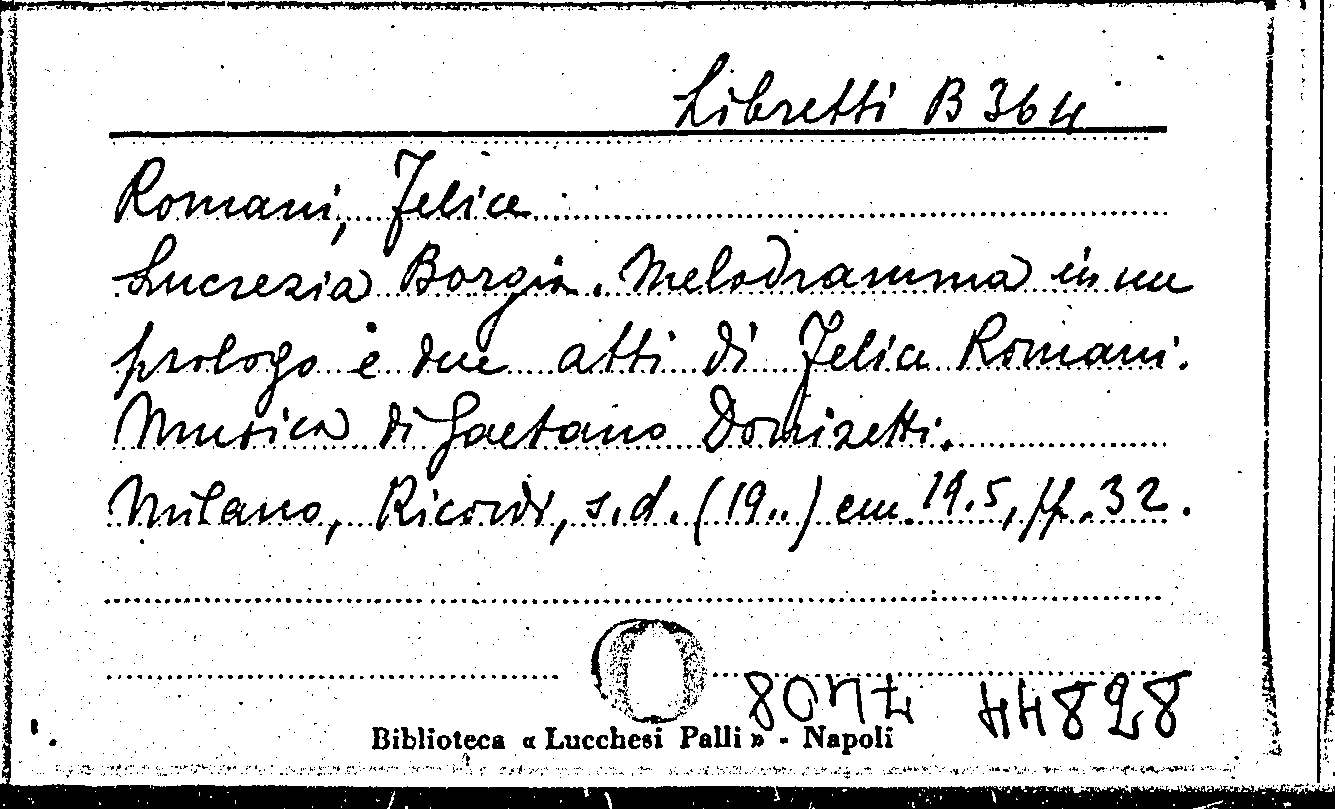 Libretti B 364
Romani, Felice
Lucrezia Borgia. Melodramma in un
prologo e due atti di Felice Romani.
Musica di Gaetano Donizetti.
Milano, Ricordi, s.d. (19..) cm. 19.5, pp. 32.
44828
Biblioteca « Lucchesi Palli » - Napoli